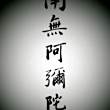 南無阿彌陀